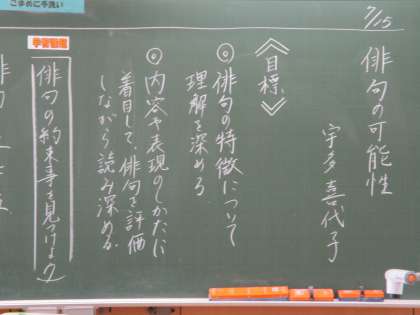 7/15
俳句の可能性
宇多喜代子
《目標》
◎俳句の特徴について
理解を深める
◎内容や表現のしかたに
着目して、俳句を評価
しながら読み深める
学習課題
俳句の約束事を見つけよう
こまめに手洗い